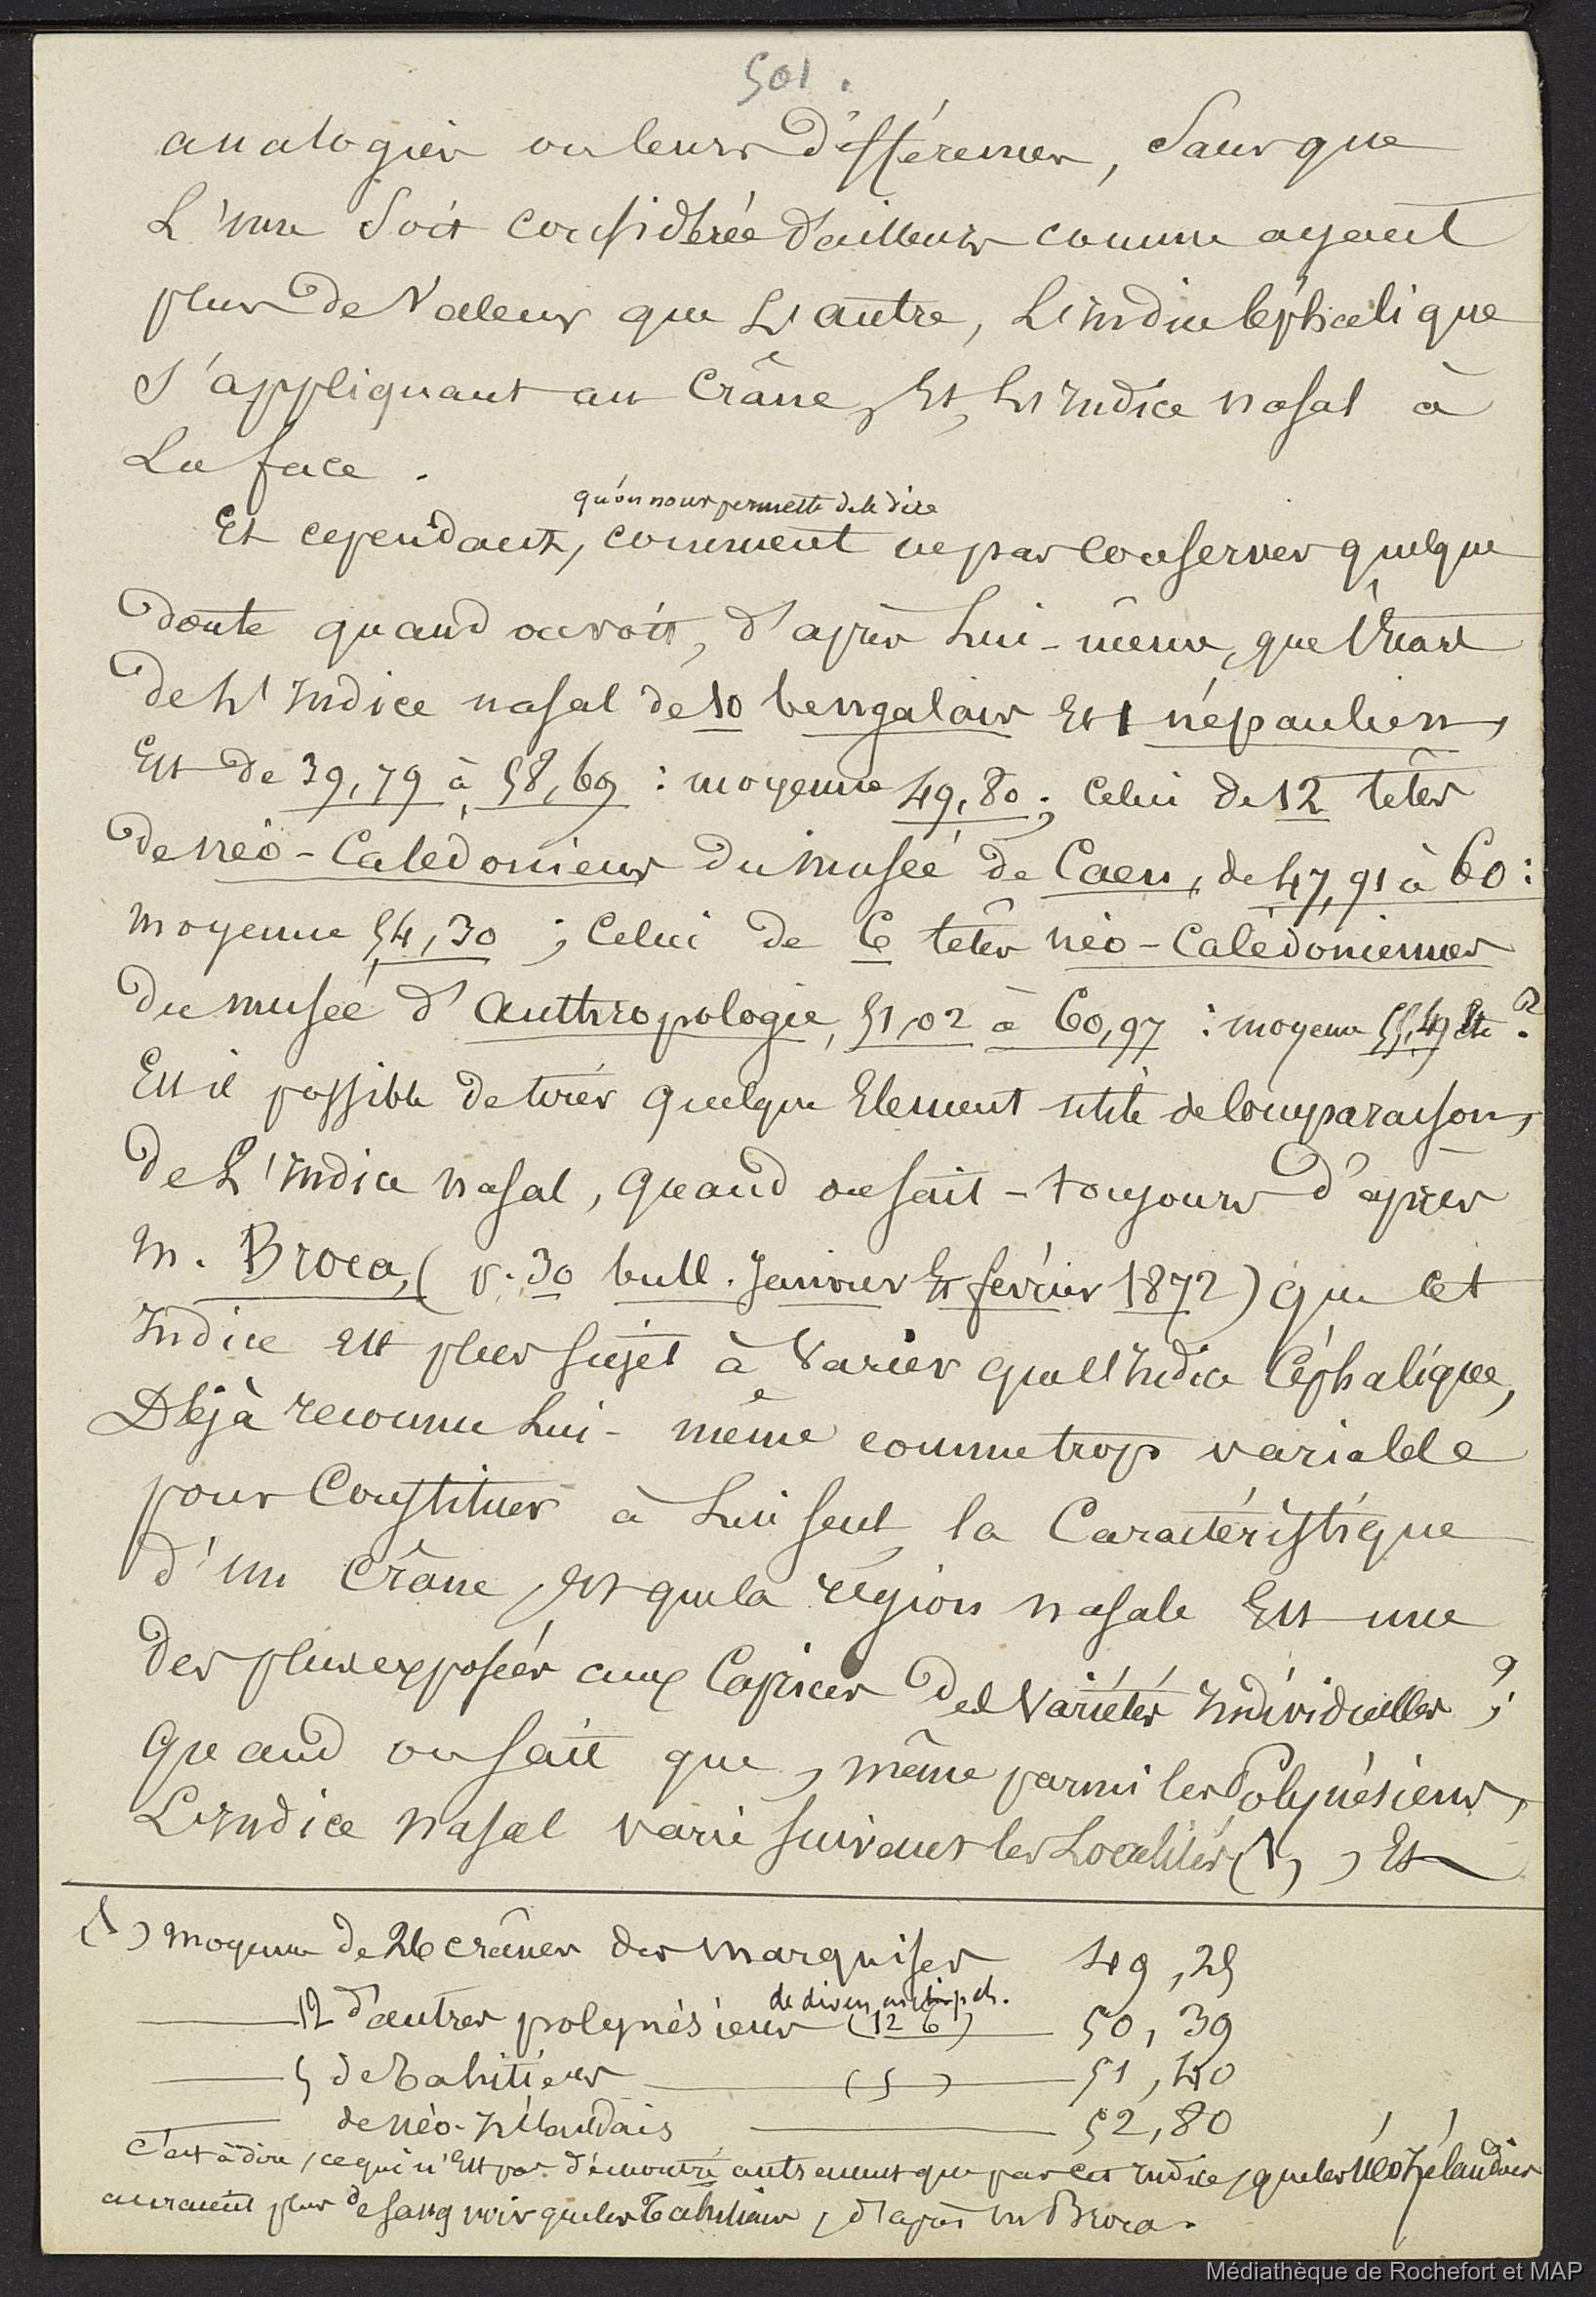 501.
analogies ou leurs différences, sans que
L'une soit considérée d'ailleurs comme ayant
plus de valeur que L'autre, L'indice céphalique
s'appliquant au Crâne, Et, L'Indice nasal à
La face.
qu'on nous permette de le dire
Et cependant, comment ne pas conserver quelque
doute quand on voit, d'après Lui-même, que l'écart
de L'Indice nasal de 10 bengalais Et 1 népaulien,
Est de 39,79 à 58,69 : moyenne 49,80 ; celui de 12 têtes
de néo-Calédoniens du musée de Caen, de 47,91 à 60 :
moyenne 54,30 ; Celui de 6 têtes néo-Calédoniennes
du musée d'anthropologie, 51,02 à 60,97 : moyenne 55,49 Etc ?
Est il possible de tirer quelque Element utile de comparaison,
de L'Indice nasal, quand on sait - toujours d'après
M. Broca, (p. 30 bull. Janvier Et février 1872) que cet
Indice est plus sujet à varier que l'Indice Céphalique,
Déjà reconnu Lui-même comme trop variable
pour Constituer à Lui seul, la Caractéristique
d'un Crâne, Et que la région nasale Est une
des plus exposées aux Caprices des Variétés Individuelles ? ;
Quand on sait que, même parmi les Polynésiens,
L'Indice nasal varie suivant les Localités (1), Et
(1) moyenne de 26 crânes des marquises 49,25
de divers archipels.
12 d'autres polynésiens (12 6) 50,39
5 de Tahitiens (5) 51,40
de néo-Zélandais 52,80
C'est à dire, ce qui n'Est pas démontré autrement que par cet Indice, que les néo Zélandais
auraient plus de sang noir que les Tahitiens, d'après M Broca.
Médiathèque de Rochefort et MAP